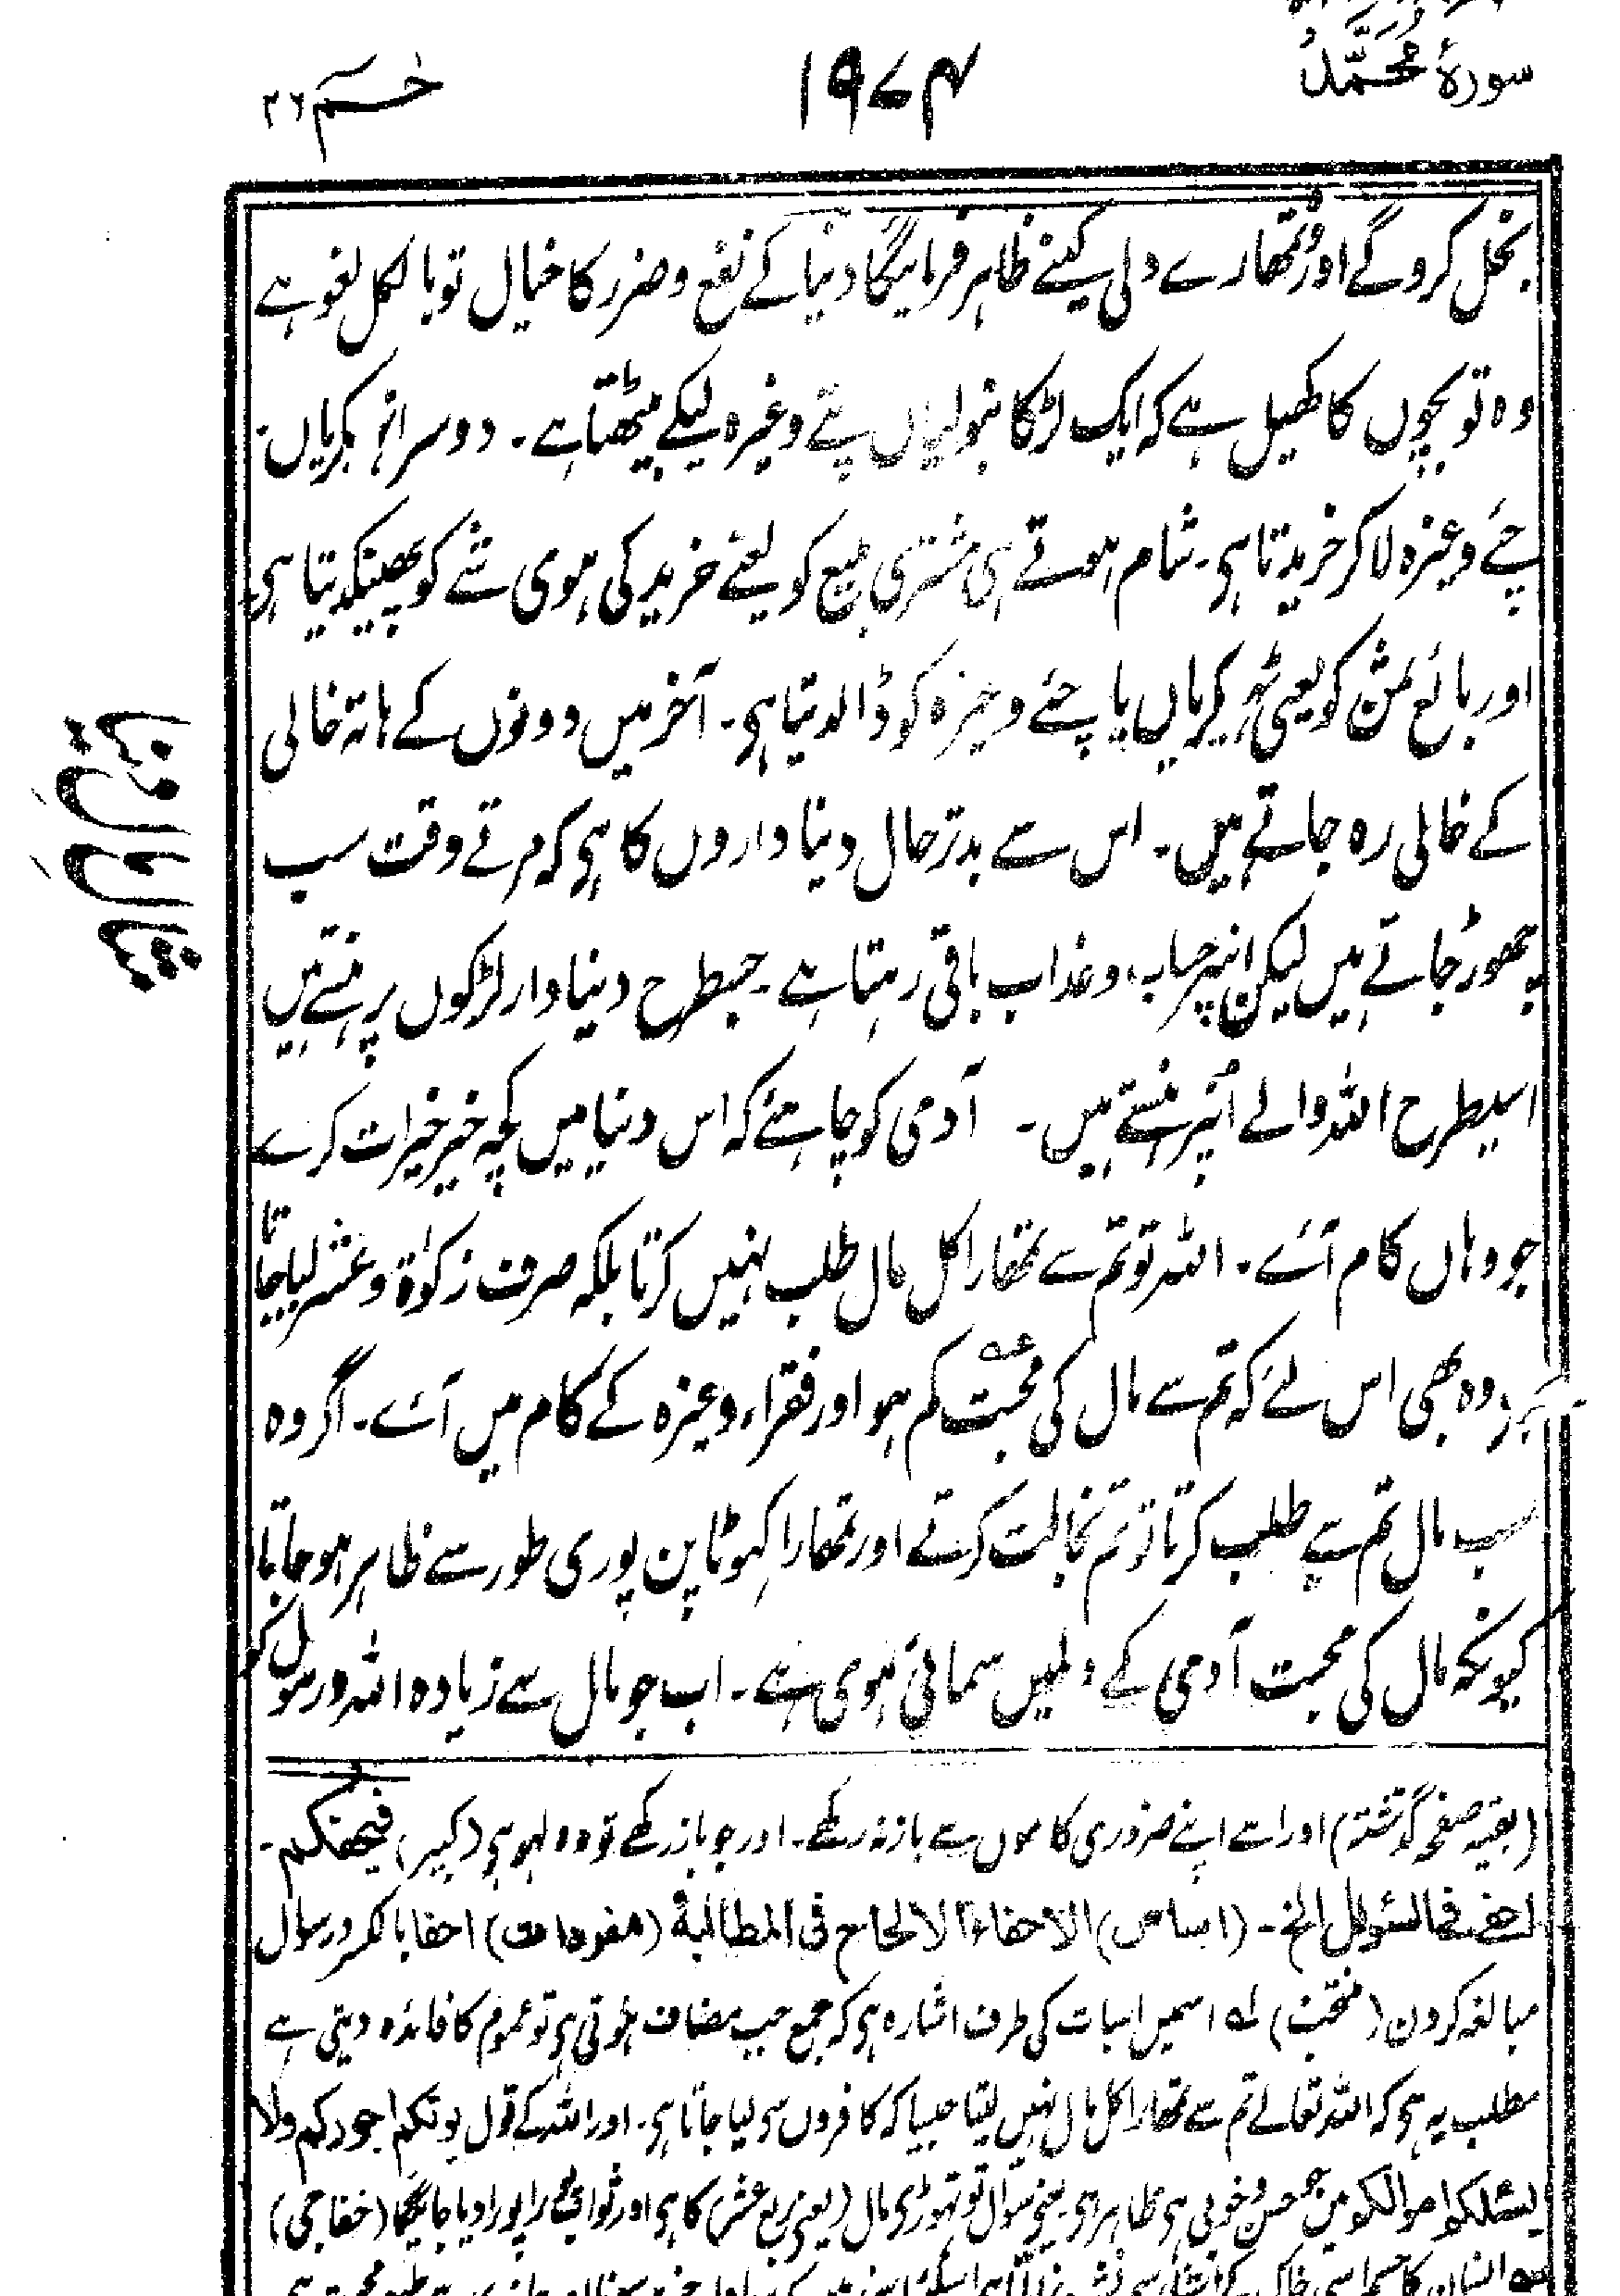 سورۂ محمَّد
١٩٧٤
حٰـم ٢٦
بخل کروگے اور وُہ تمھارے دلی کینے ظاہر فرمائیگا دنیا کے نفع وضرر کا خیال تو بالکل لغو ہے
وہ تو بچوں کا کھیل ہے کہ ایک لڑکا نبولیاں پتے وغیرہ لیکے بیٹھتا ہے۔ دوسرا ٹہیکریاں
چیئے وغیرہ لاکر خریدتا ہی۔ شام ہوتے ہی مشتری مبیع کو یعنے خرید کی ہوی شے کو پھینکدیتا ہی
اور بائع ثمن کو یعنی ٹہیکریاں یا چیئے وغیرہ کو ڈالدیتا ہی۔ آخر میں دونوں کے ہاتہ خالی
کے خالی رہ جاتے ہیں۔ اس سے بدتر حال دنیا داروں کا ہی کہ مرتے وقت سب
چھوڑ جاتے ہیں لیکن انپر حساب وعذاب باقی رہتا ہے۔ جسطرح دنیا دار لڑکوں پر ہنستے ہیں
اسیطرح اللہ والے اُنپر ہنستے ہیں۔ آدمی کو چاہئے کہ اس دنیا میں کچہ خیر خیرات کرے
جو وہاں کام آئے۔ اللہ تو تم سے تمھارا کل مال طلب نہیں کرتا بلکہ صرف زکوٰۃ وعشر لیا جاتا
وہ بھی اس لئے کہ تم سے مال کی محبّت کم ہو اور فقراء وغیرہ کے کام میں آئے۔ اگر وہ
سب مال تم سے طلب کرتا تو تم بخالت کرتے اور تمھارا کہوٹا پن پوری طور سے ظاہر ہو جاتا
کیونکہ مال کی محبت آدمی کے دلمیں سمائی ہوی ہے۔ اب جو مال سے زیادہ اللہ ورسول کو
(بقیہ صفحہ گذشتہ) اور اسے اپنے ضروری کاموں سے باز نہ رکھے۔ اور جو باز رکھے تو وہ لہو ہی (کبیر) فیحفکم۔
احفے فی السئوال الخ۔ (اساس) الاحفاء الالحاح فی المطالبۃ (مفردات) احفا بالکسر در سوال
مبالغہ کردن (منتخب) لہ اسمیں اسبات کی طرف اشارہ ہی کہ جمع جب مضاف ہوتی ہی تو عموم کا فائدہ دیتی ہے
مطلب یہ ہی کہ اللہ تعالے تم سے تمھارا کل مال نہیں لیتا جیسا کہ کافروں سی لیا جاتا ہی۔ اور اللہ کے قول یوتکم اجورکم ولا
یسئلکم اموالکم میں جو حسن وخوبی ہی ظاہر ہی یعنے سوال تو تہوڑی مال (یعنی ربع عشر) کا ہی اور ثواب پورا پورا دیا جائیگا (خفاجی)